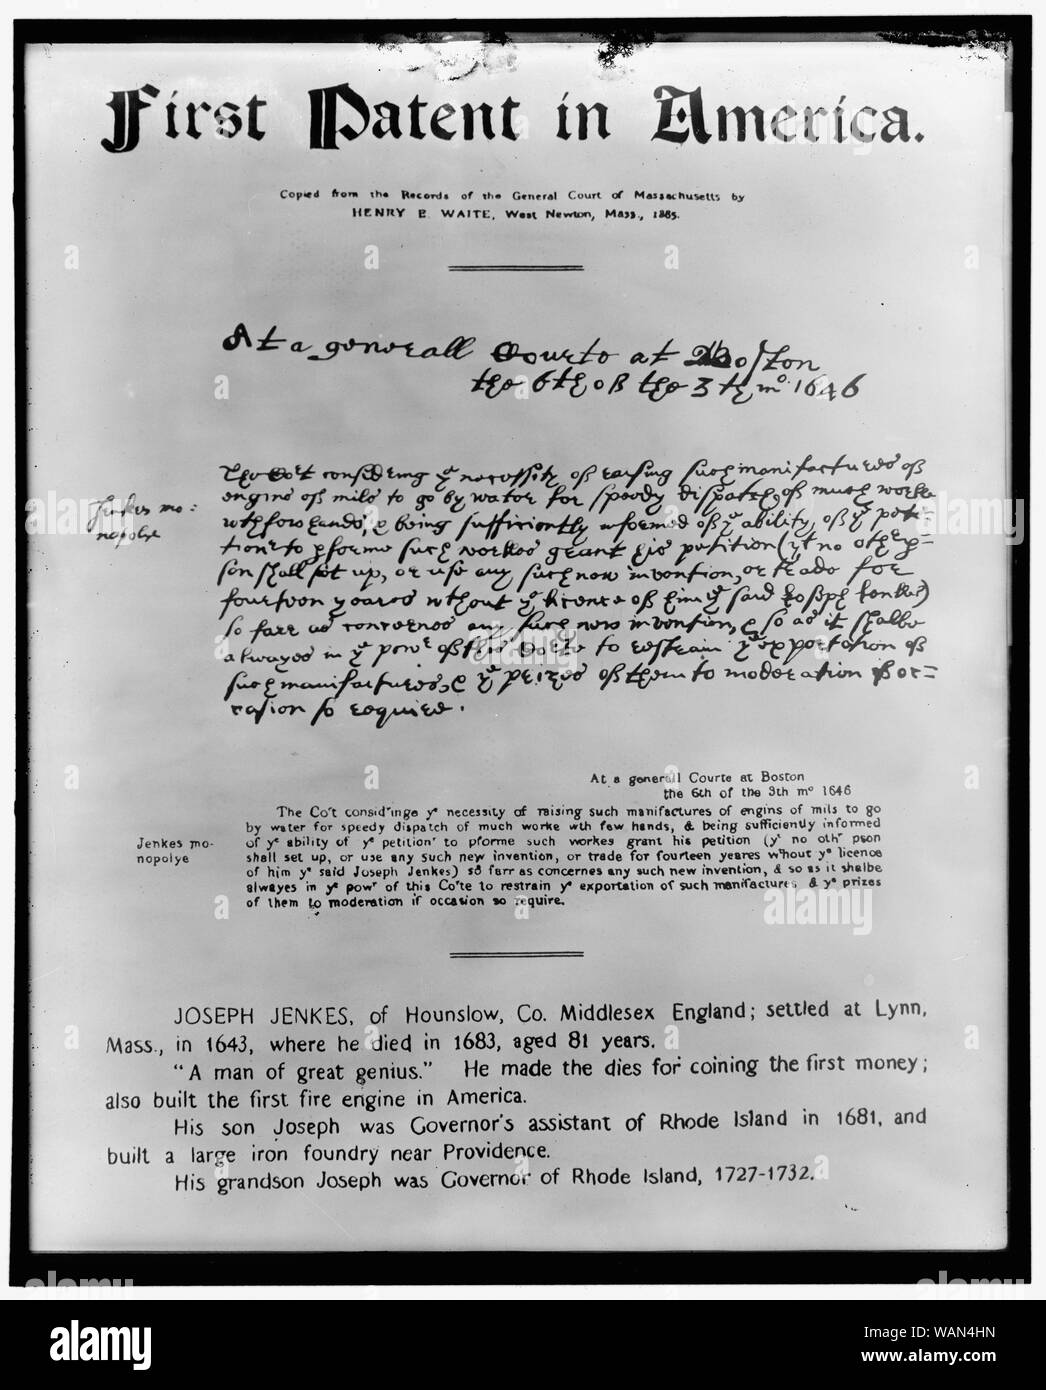 First Patent in America.
Copied from the Records of the General Court of Massachusetts by
HENRY E. WAITE, West Newton, Mass., 1885.
At a generall Courte at Boston
the 6th of the 3th mo. 1646
Jenkes mo:
nopolye
The Cort considering ye necessity of raising such manifactures of
engins of mils to go by water for speedy dispatch of much worke
wth few hands, & being sufficiently informed of ye ability of ye peti:
tionr to pforme such workes grant his petition (yt no other p=
son shall set up, or use any such new invention, or trade for
fourteen yeares without ye licence of him ye said Joseph Jenkes)
so farr as concernes any such new invention, & so as it shalbe
alwayes in ye powr of this Corte to restrain ye exportation of
such manifactures, & ye prizes of them to moderation if oc=
casion so require.
At a generall Courte at Boston
the 6th of the 3th mo 1646
The Co't consid'inge ye necessity of raising such manifactures of engins of mils to go
by water for speedy dispatch of much worke wth few hands, & being sufficiently informed
Jenkes mo-
nopolye
of ye ability of ye petitionr to pforme such workes grant his petition (yt no othr pson
shall set up, or use any such new invention, or trade for fourteen yeares wthout ye licence
of him ye said Joseph Jenkes) so farr as concernes any such new invention, & so as it shalbe
alwayes in ye powr of this Co'te to restrain ye exportation of such manifactures & ye prizes
of them to moderation if occasion so require.
JOSEPH JENKES, of Hounslow, Co. Middlesex England; settled at Lynn,
Mass., in 1643, where he died in 1683, aged 81 years.
"A man of great genius." He made the dies for coining the first money;
also built the first fire engine in America.
His son Joseph was Governor's assistant of Rhode Island in 1681, and
built a large iron foundry near Providence.
His grandson Joseph was Governor of Rhode Island, 1727-1732.
alamy
Image ID: WAN4HN
www.alamy.com